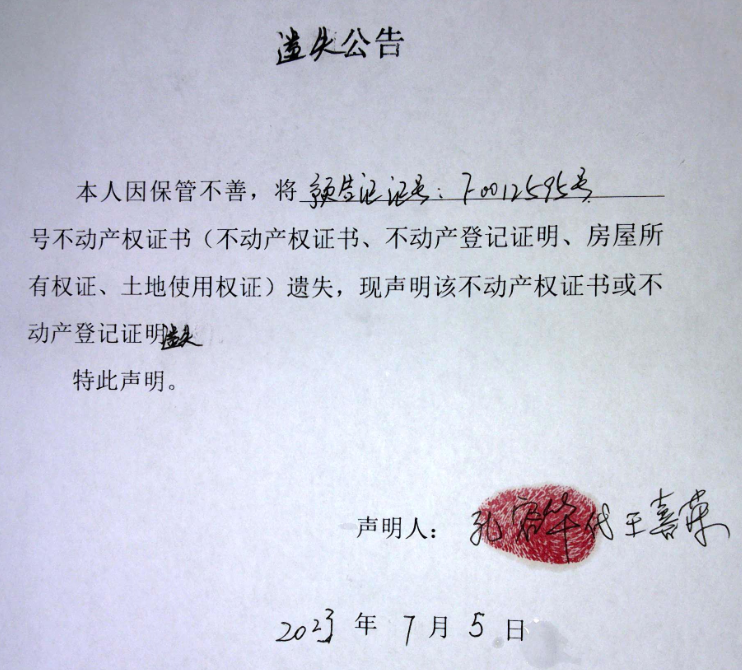 遗失公告
本人因保管不善，将 预告证证号：F0012595号
号不动产权证书（不动产权证书、不动产登记证明、房屋所
有权证、土地使用权证）遗失，现声明该不动产权证书或不
动产登记证明遗失
特此声明。
声明人：孔 华代王喜荣
2023年7月5日